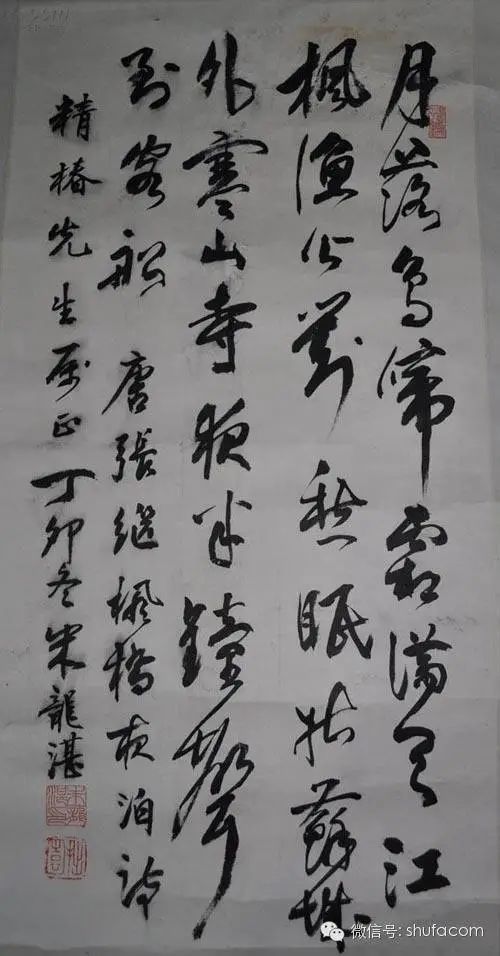 月落烏啼霜滿天江
楓漁火對愁眠姑蘇城
外寒山寺夜半鐘聲
到客船 唐張繼楓橋夜泊詩
精椿先生属正 丁卯冬朱龍湛
微信号: shufacom